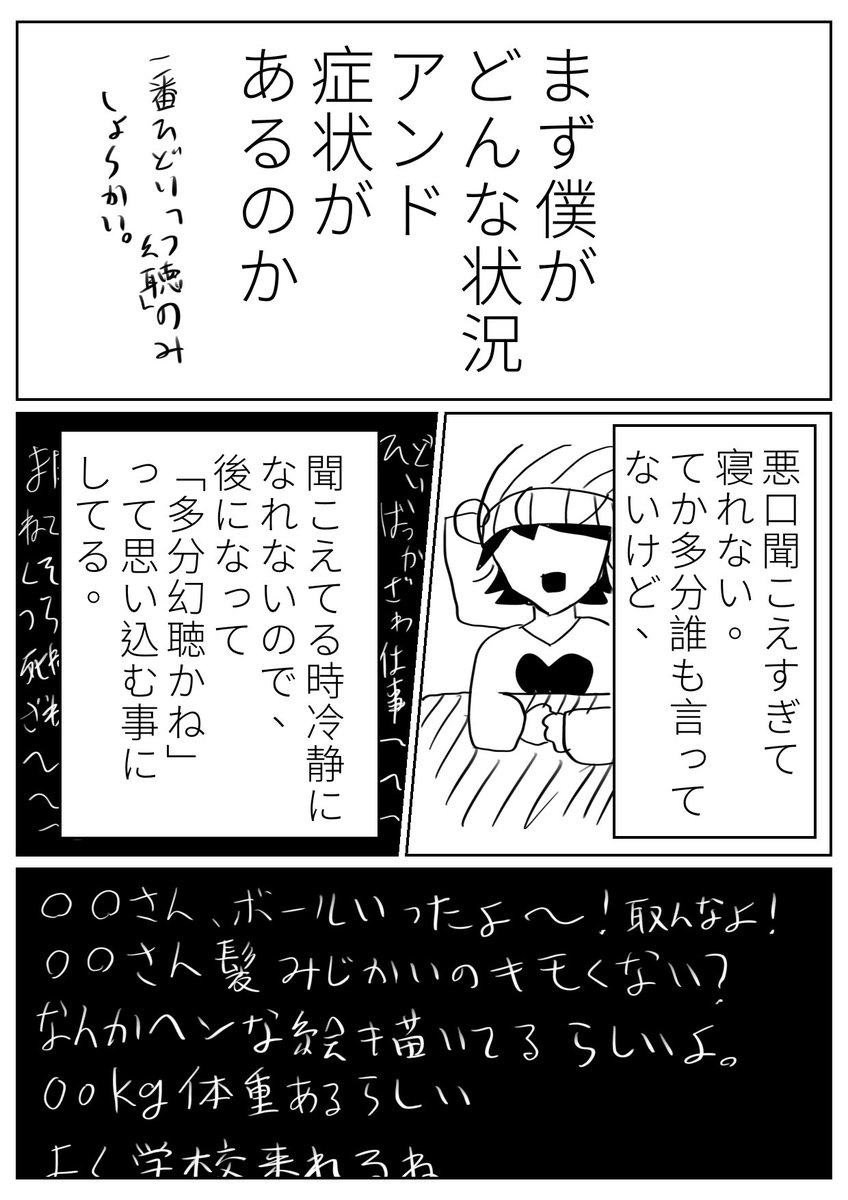 まず僕が
どんな状況
アンド
症状が
あるのか
一番ひどい「幻聴」のみ
しょうかい。
悪口聞こえすぎて
寝れない。
てか多分誰も言って
ないけど、
聞こえてる時冷静に
なれないので、
後になって
「多分幻聴かね」
って思い込む事に
してる。
〇〇さん、ボールいったよ〜!取んなよ!
〇〇さん髪みじかいのキモくない?
なんかヘンな絵も描いてるらしいよ。
〇〇kg体重あるらしい
よく学校来れるね